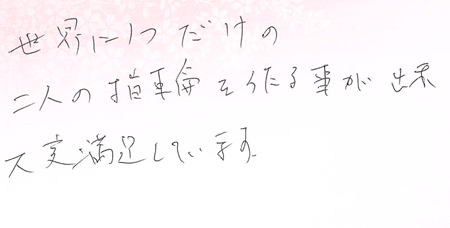 世界に1つだけの
二人の指輪を作る事が出来
大変満足しています。